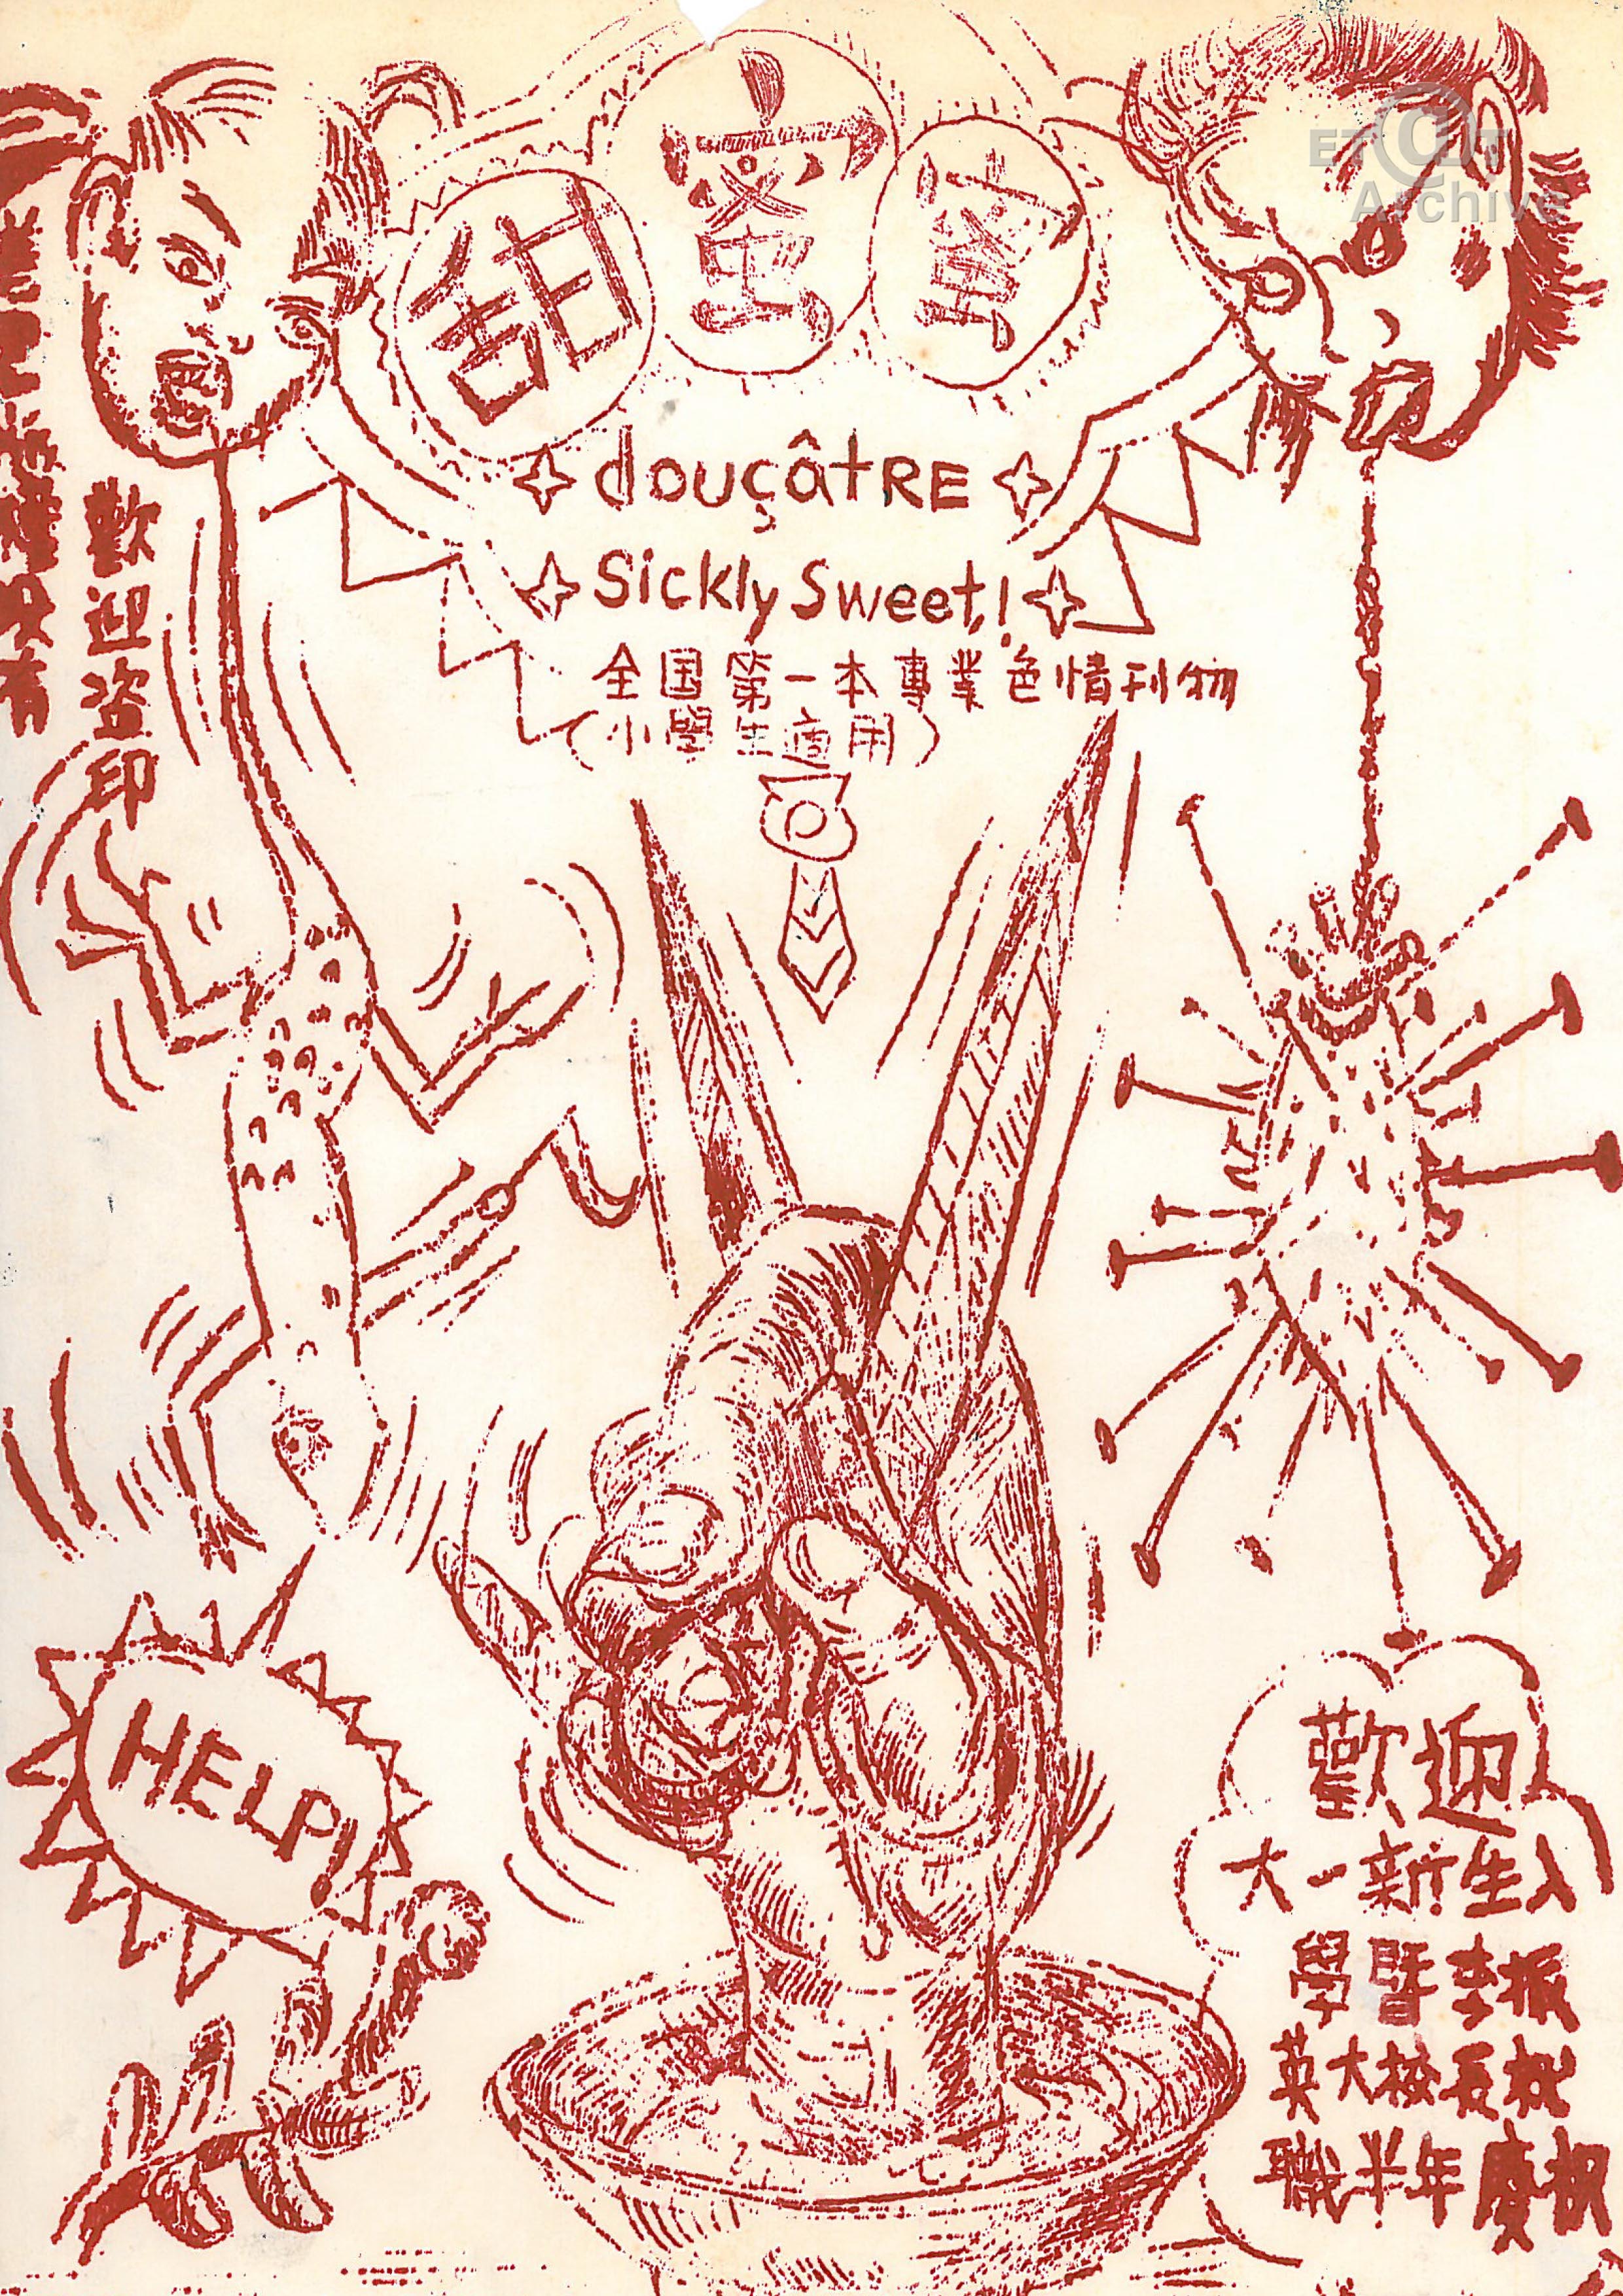 ET@T
Archive
甜蜜蜜
douçâtRE
Sickly Sweet!
全国第一本專業色情刊物
（小學生適用）
版權沒有
歡迎盜印
HELP!
歡迎
大一新生入
學暨李振
英大校長就
職半年慶祝